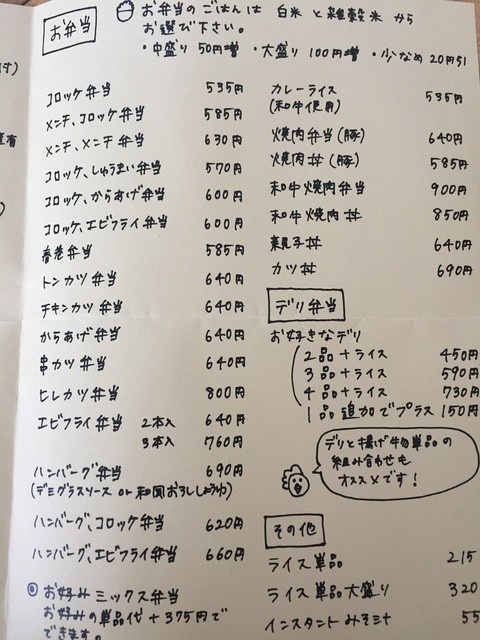 お弁当
お弁当のごはんは 白米 と 雑穀米 から
お選び下さい。
・中盛り 50円増 ・大盛り 100円増 ・少なめ 20円引
コロッケ弁当 535円
メンチ、コロッケ弁当 585円
メンチ、メンチ弁当 630円
コロッケ、しゅうまい弁当 570円
コロッケ、からあげ弁当 600円
コロッケ、エビフライ弁当 600円
春巻弁当 585円
トンカツ弁当 640円
チキンカツ弁当 640円
からあげ弁当 640円
串カツ弁当 640円
ヒレカツ弁当 800円
エビフライ弁当 2本入 640円
3本入 760円
ハンバーグ弁当 690円
(デミグラスソース or 和風おろししょうゆ)
ハンバーグ、コロッケ弁当 620円
ハンバーグ、エビフライ弁当 660円
◎ お好みミックス弁当
お好みの単品代 + 375円で
できます。
カレーライス 535円
(和牛使用)
焼肉弁当(豚) 640円
焼肉丼(豚) 585円
和牛焼肉弁当 900円
和牛焼肉丼 850円
親子丼 640円
カツ丼 690円
デリ弁当
お好きなデリ
2品+ライス 450円
3品+ライス 590円
4品+ライス 730円
1品追加でプラス 150円
デリと揚げ物単品の
組み合わせも
オススメです!
その他
ライス単品 215
ライス単品大盛り 320
インスタントみそ汁 55